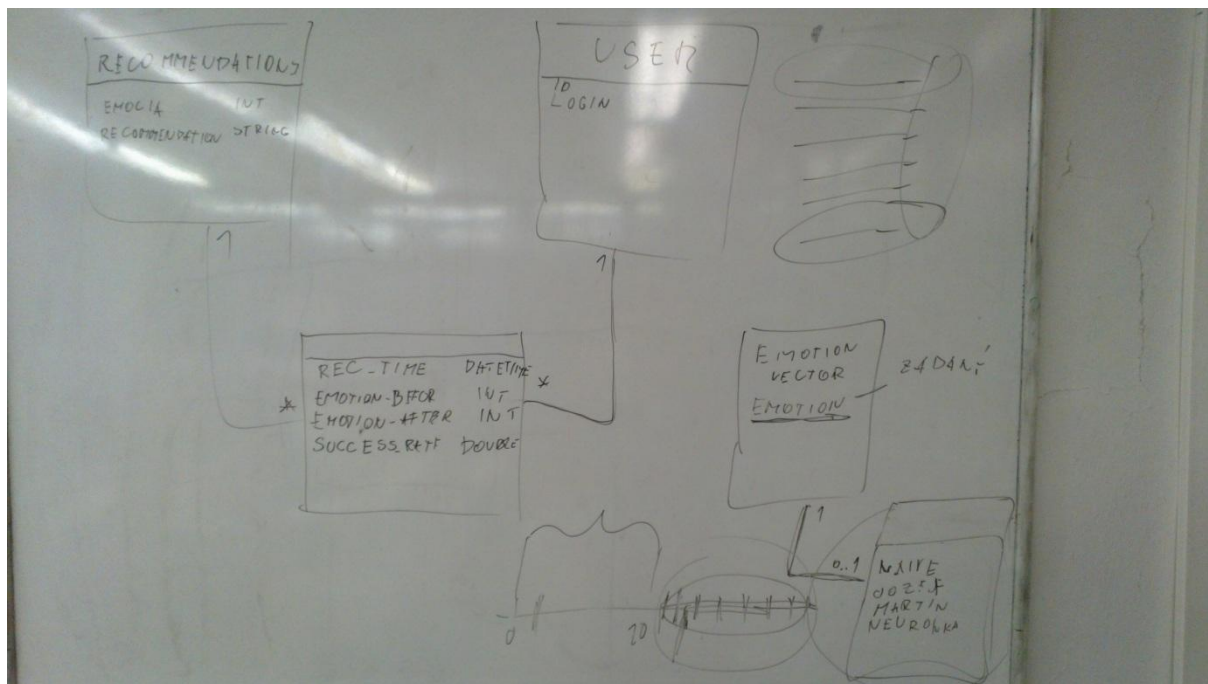 RECOMMENDATIONS
EMOCIA INT
RECOMMENDATION STRING
1
USER
ID
LOGIN
1
REC_TIME DATETIME
EMOTION-BEFOR INT
EMOTION-AFTER INT
SUCCESS_RATE DOUBLE
*
*
EMOTION
VECTOR
EMOTION
ZADANÉ
1
0..1
NAIVE
MARTIN
NEURONKA
0